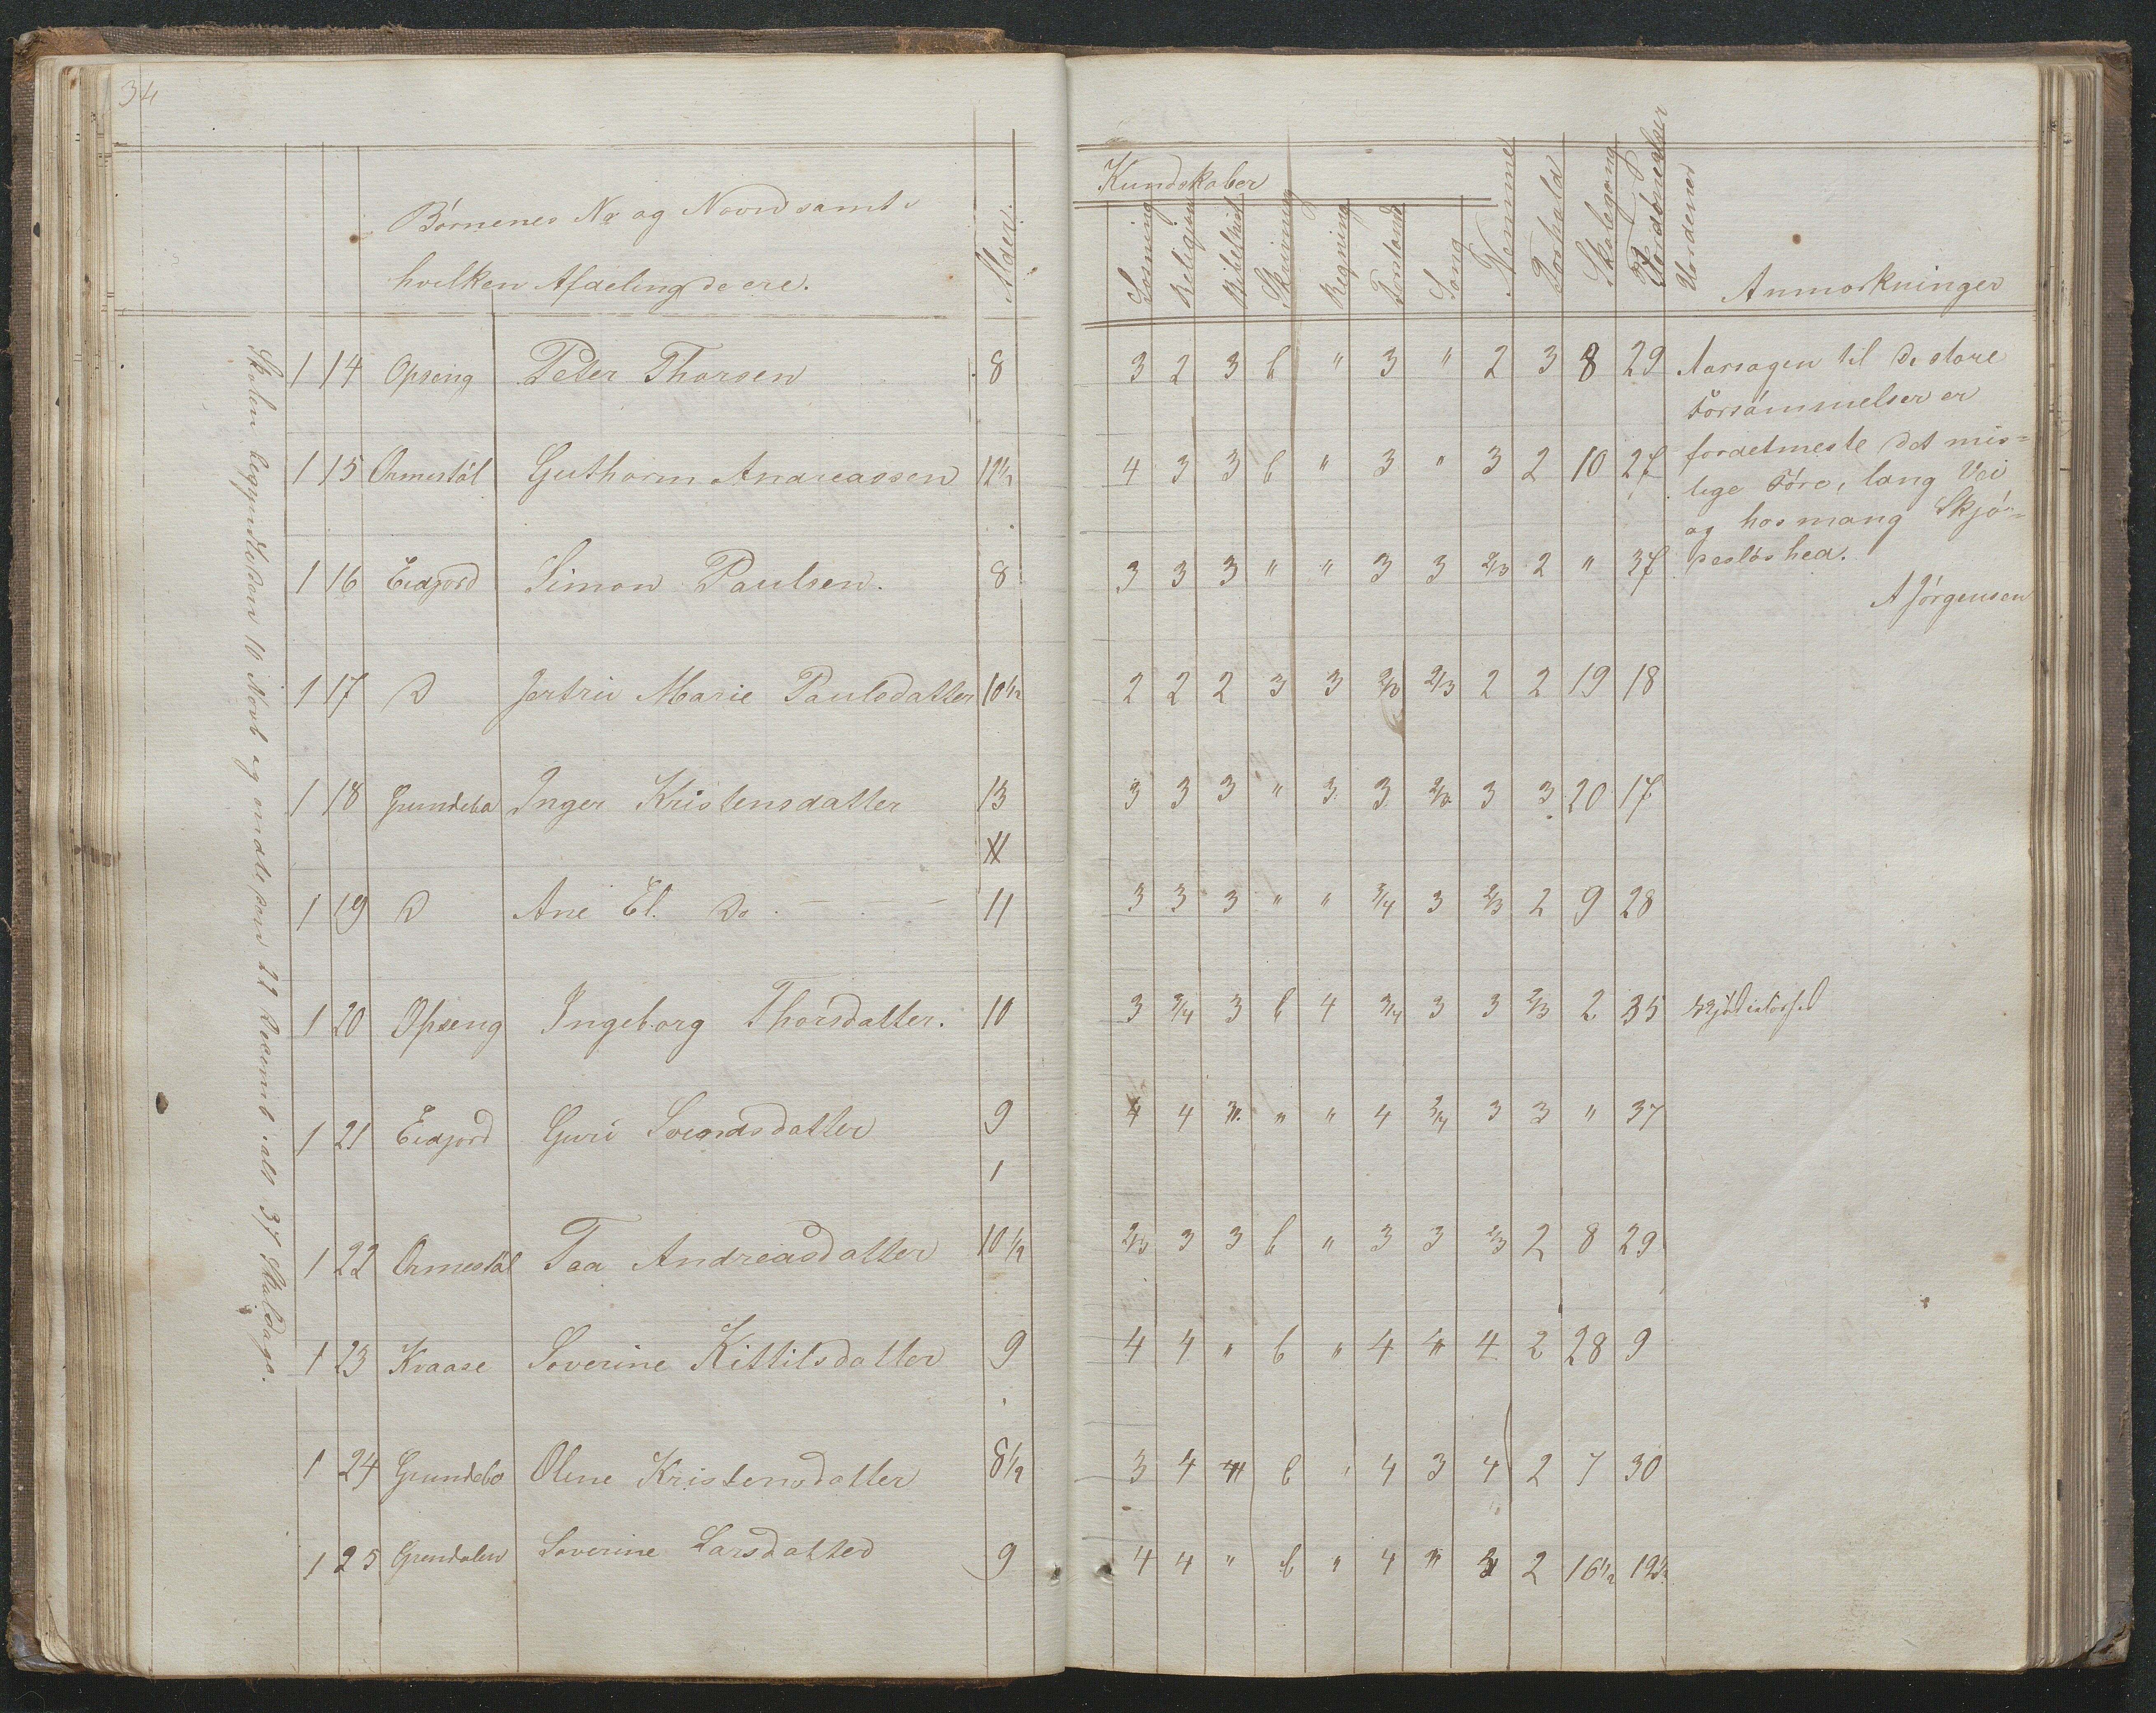 34
Börnenes Nr og Navn samt i
hvilken Afdeling de ere.
Alder.
Kundskaber
Læsning Religion Bibelhist Skrivning Regning Forstand Sang Nemme Forhold Skolegang Forsömmelser
Anmærkninger
1 14 Opseng Peter Thorsen 8 3 2 3 b " 3 " 2 3 8 29 Aarsagen til de store
Forsömmelser er
1 15 Ormestöl Guthorm Andreassen 12½ 4 3 3 b " 3 " 3 2 10 27 fordetmeste det mis=
lige Före, lang Vei
og hos mang Skjö=
1 16 Eidjord Simon Paulsen. 8 3 3 3 " " 3 3 2/3 2 " 37 reslöshed.
A Jörgensen
1 17 D Jertrud Marie Paulsdatter 10½ 2 2 2 3 3 2/3 2/3 2 2 19 18
1 18 Grundebo Inger Kristensdatter 13 3 3 3 " 3 3 2/3 3 3 20 17
11
1 19 D Ane El. Do. 11 3 3 3 " " 3/4 3 2/3 2 9 28
1 20 Opseng Ingeborg Thorsdatter. 10 3 3/4 3 b 4 3/4 3 3 2/3 2 35
1 21 Eidjord Guri Svendsdatter 9 4 4 " " " 4 3/4 3 3 " 37
1
1 22 Ormestöl Taa Andreasdatter 10½ 2/3 3 3 b " 3 3 2/3 2 8 29
1 23 Kvaase Soverine Kittilsdatter 9 4 4 " b " 4 " 4 2 28 9
1 24 Grundebo Oline Kristensdatter 8½ 3 4 " b " 4 3 4 2 7 30
1 25 Grendalen Soverine Larsdatter 9 4 4 " b " 4 " 3 2 16½ 19½
Skolen begyndte den 10 Novb og endte den 22 Decemb ialt 37 Skoldage.